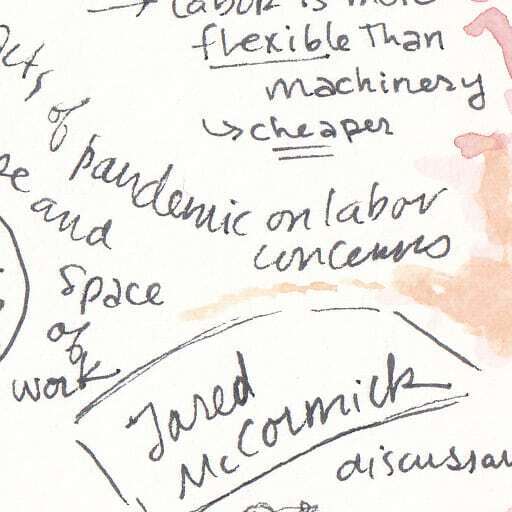 → labor is more
flexible than
machinery
↳ cheaper
of pandemic on labor
concerns
and
space
of
work
Jared
McCormick